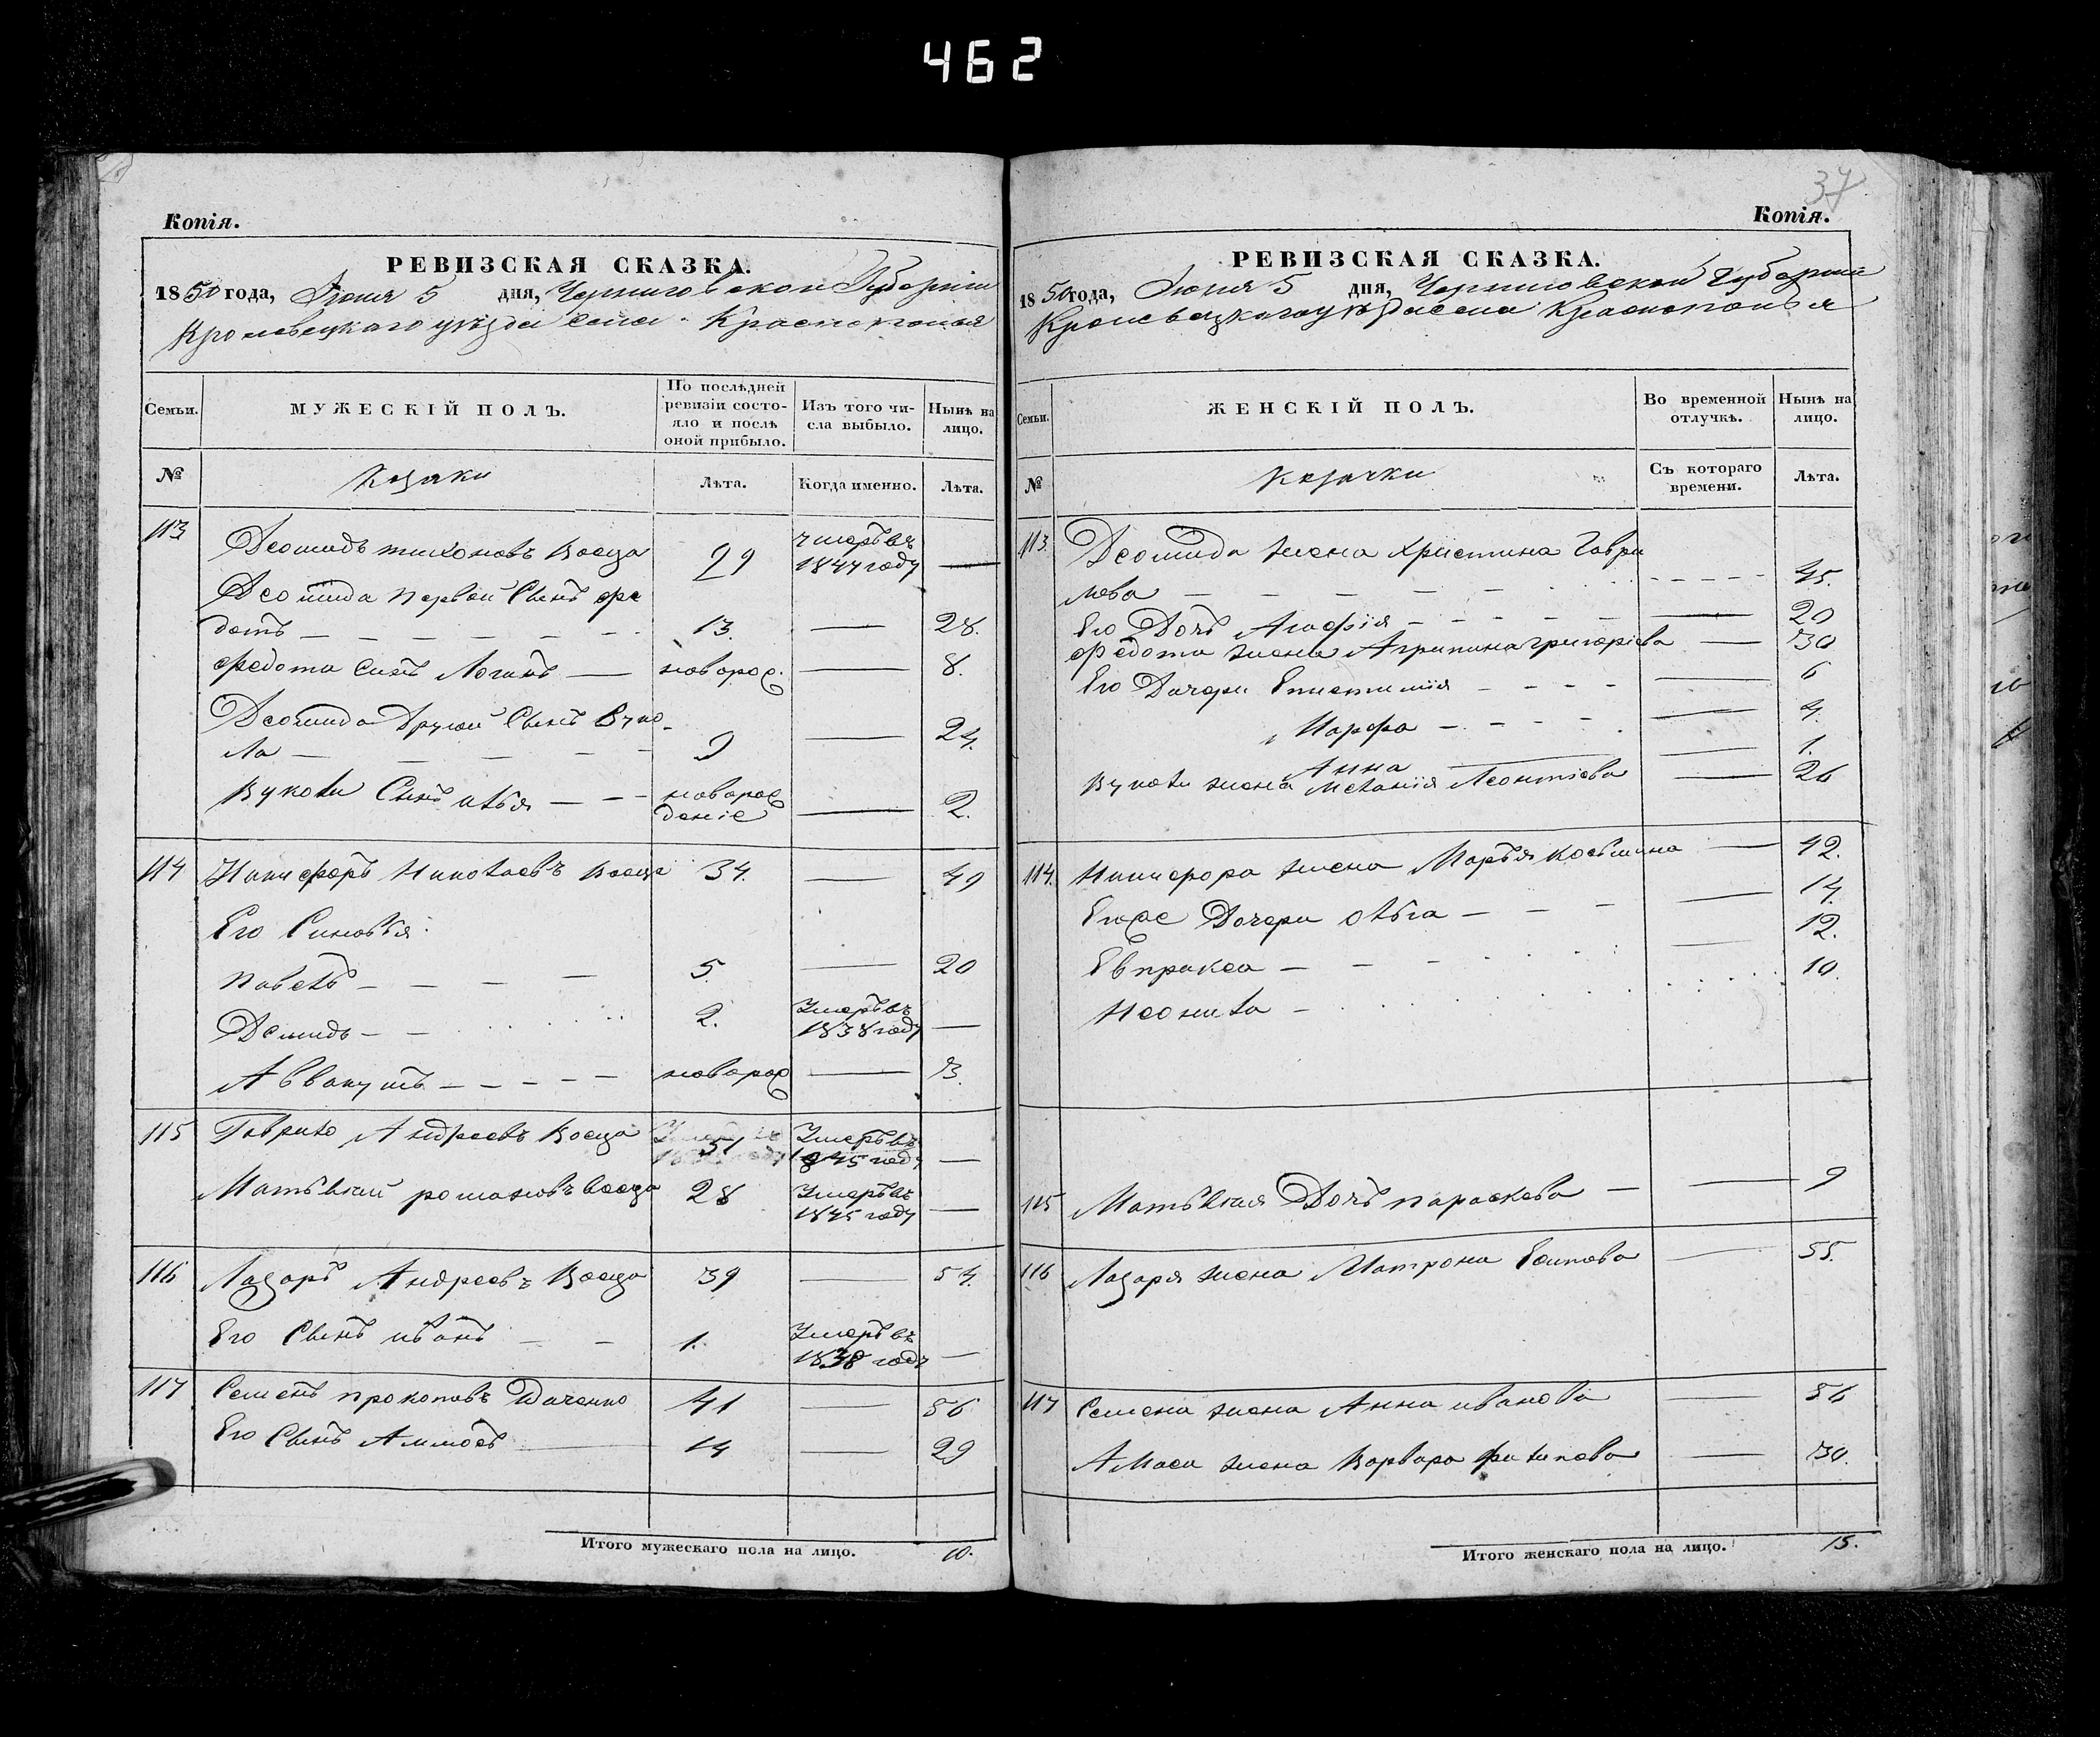 462
Копія.
РЕВИЗСКАЯ СКАЗКА.
1850 года, Іюня 5 дня, Черниговской Губерніи
Кролевецкаго уѣзда села Краснополья
Семьи.
МУЖЕСКІЙ ПОЛЪ.
По послѣдней ревизіи состояло и послѣ оной прибыло.
Изъ того числа выбыло.
Нынѣ на лицо.
№
Козаки
Лѣта.
Когда именно.
Лѣта.
113 Деомидъ тихоновъ Воеца 29 умеръ въ 1844 году —
Деомида первой Сынъ фе
дотъ — 13. — 28.
федота сынъ Логинъ — новорож. — 8.
Деомида Другой Сынъ Вуко
ла — 9 — 24.
Вукола Сынъ илья — новорож
деніе — 2.
114 Никифоръ Николаевъ Воеца 34. — 49
Его Синовья:
Павелъ — 5. — 20
Демидъ — 2. Умеръ въ 1838 году —
Аввакумъ — новорож — 3.
115 Гаврило Андреевъ Воеца 51 Умеръ въ 1845 году —
Матѣвей романовъ воеца 28 Умеръ въ 1845 году —
116 Лазарь Андреевъ Воеца 39 — 54.
Его Сынъ иванъ — 1. Умеръ въ 1838 году —
117 Семенъ прокоповъ Даченко 41 — 56
Его Сынъ Аммосъ 14 — 29
Итого мужескаго пола на лицо. 10.
37
Копія.
РЕВИЗСКАЯ СКАЗКА.
1850 года, Іюня 5 дня, Черниговской Губерніи
Кролевецкаго уѣзда села Краснополья
Семьи.
ЖЕНСКІЙ ПОЛЪ.
Во временной отлучкѣ.
Нынѣ на лицо.
№
Козачки
Съ котораго времени.
Лѣта.
113. Деомида жена Христина Гаври
лова — 45.
Его Дочь Агафія — 20
федота жена Агрипина григоріева — 30
Его Дочери Епистимія — 6
Марфа — 4.
Анна — 1.
Вукола жена Меланія Леонтіева — 26
114. Никифора жена Марья Косьмина — 42.
Егоже Дочери олѣга — 14.
Евпракса — 12.
Неонила — 10.
115 Матѣвея Дочь параскева — 9
116 Лазаря жена Матрона Есипова — 55.
117 Семена жена Анна иванова — 56
Амоса жена Варвара филипова — 30.
Итого женскаго пола на лицо. 15.